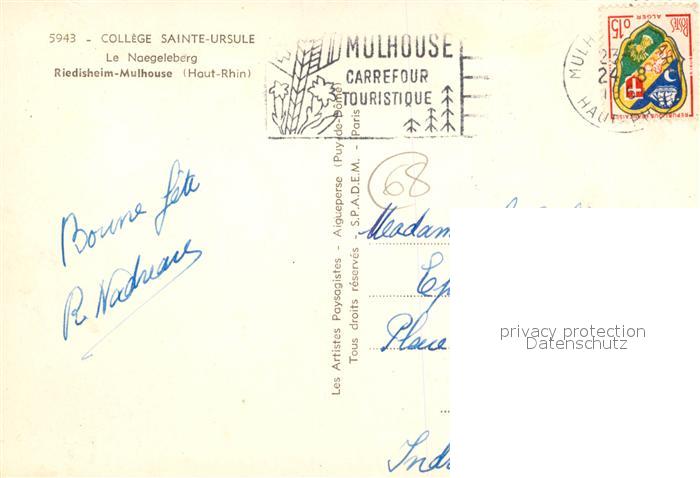 5943 - COLLÈGE SAINTE-URSULE
Le Naegeleberg
Riedisheim-Mulhouse (Haut-Rhin)
MULHOUSE
CARREFOUR
TOURISTIQUE
0,15
POSTES
ALGER
REPUBLIQUE FRANCAISE
MULH
HAUT
Les Artistes Paysagistes - Aigueperse (Puy-de-Dôme)
Tous droits réservés - S.P.A.D.E.M. - Paris
68
Bonne fête
R. Nadreau
Madam
Ep
Place
Indr
privacy protection
Datenschutz